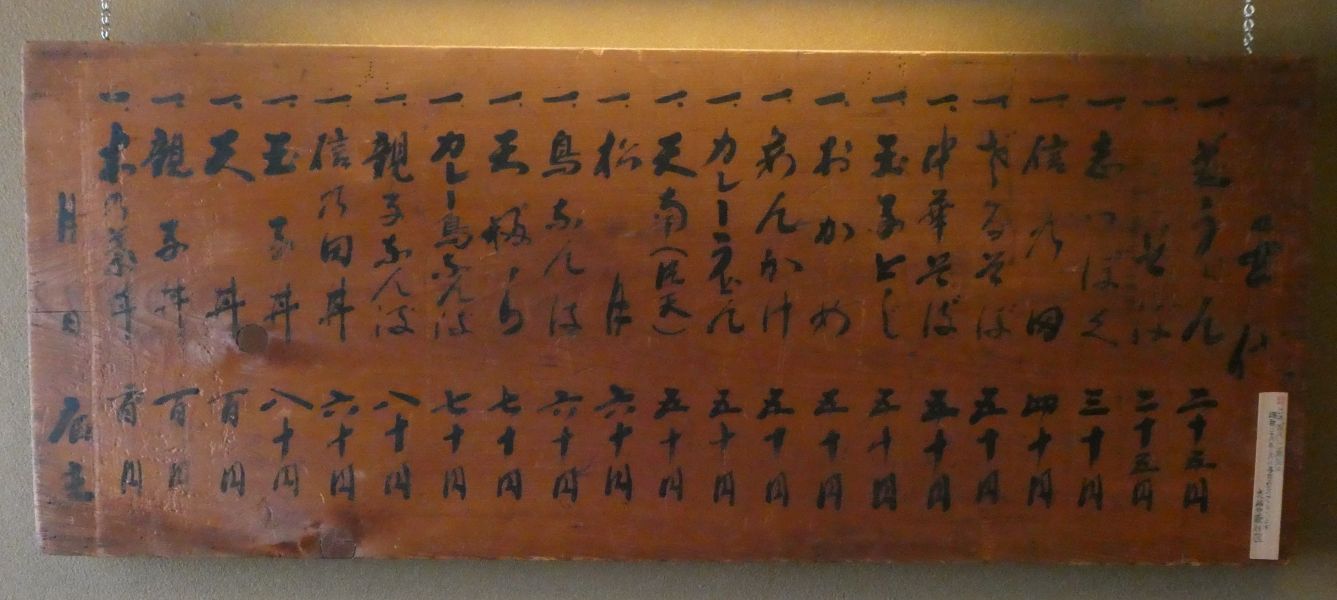 一、うどん 二十五円
一、そば 二十五円
一、志つぽく 三十円
一、信乃田 四十円
一、ざるそば 五十円
一、中華そば 五十円
一、玉子とじ 五十円
一、おかめ 五十円
一、あんかけ 五十円
一、カレーうどん 五十円
一、天南(温天) 五十円
一、松月 六十円
一、鳥なんば 六十円
一、天ぷら 七十円
一、カレー鳥なんば 七十円
一、親子なんば 八十円
一、信乃田丼 六十円
一、玉子丼 八十円
一、天丼 百円
一、親子丼 百円
一、木の葉丼 百円
月 日 店主